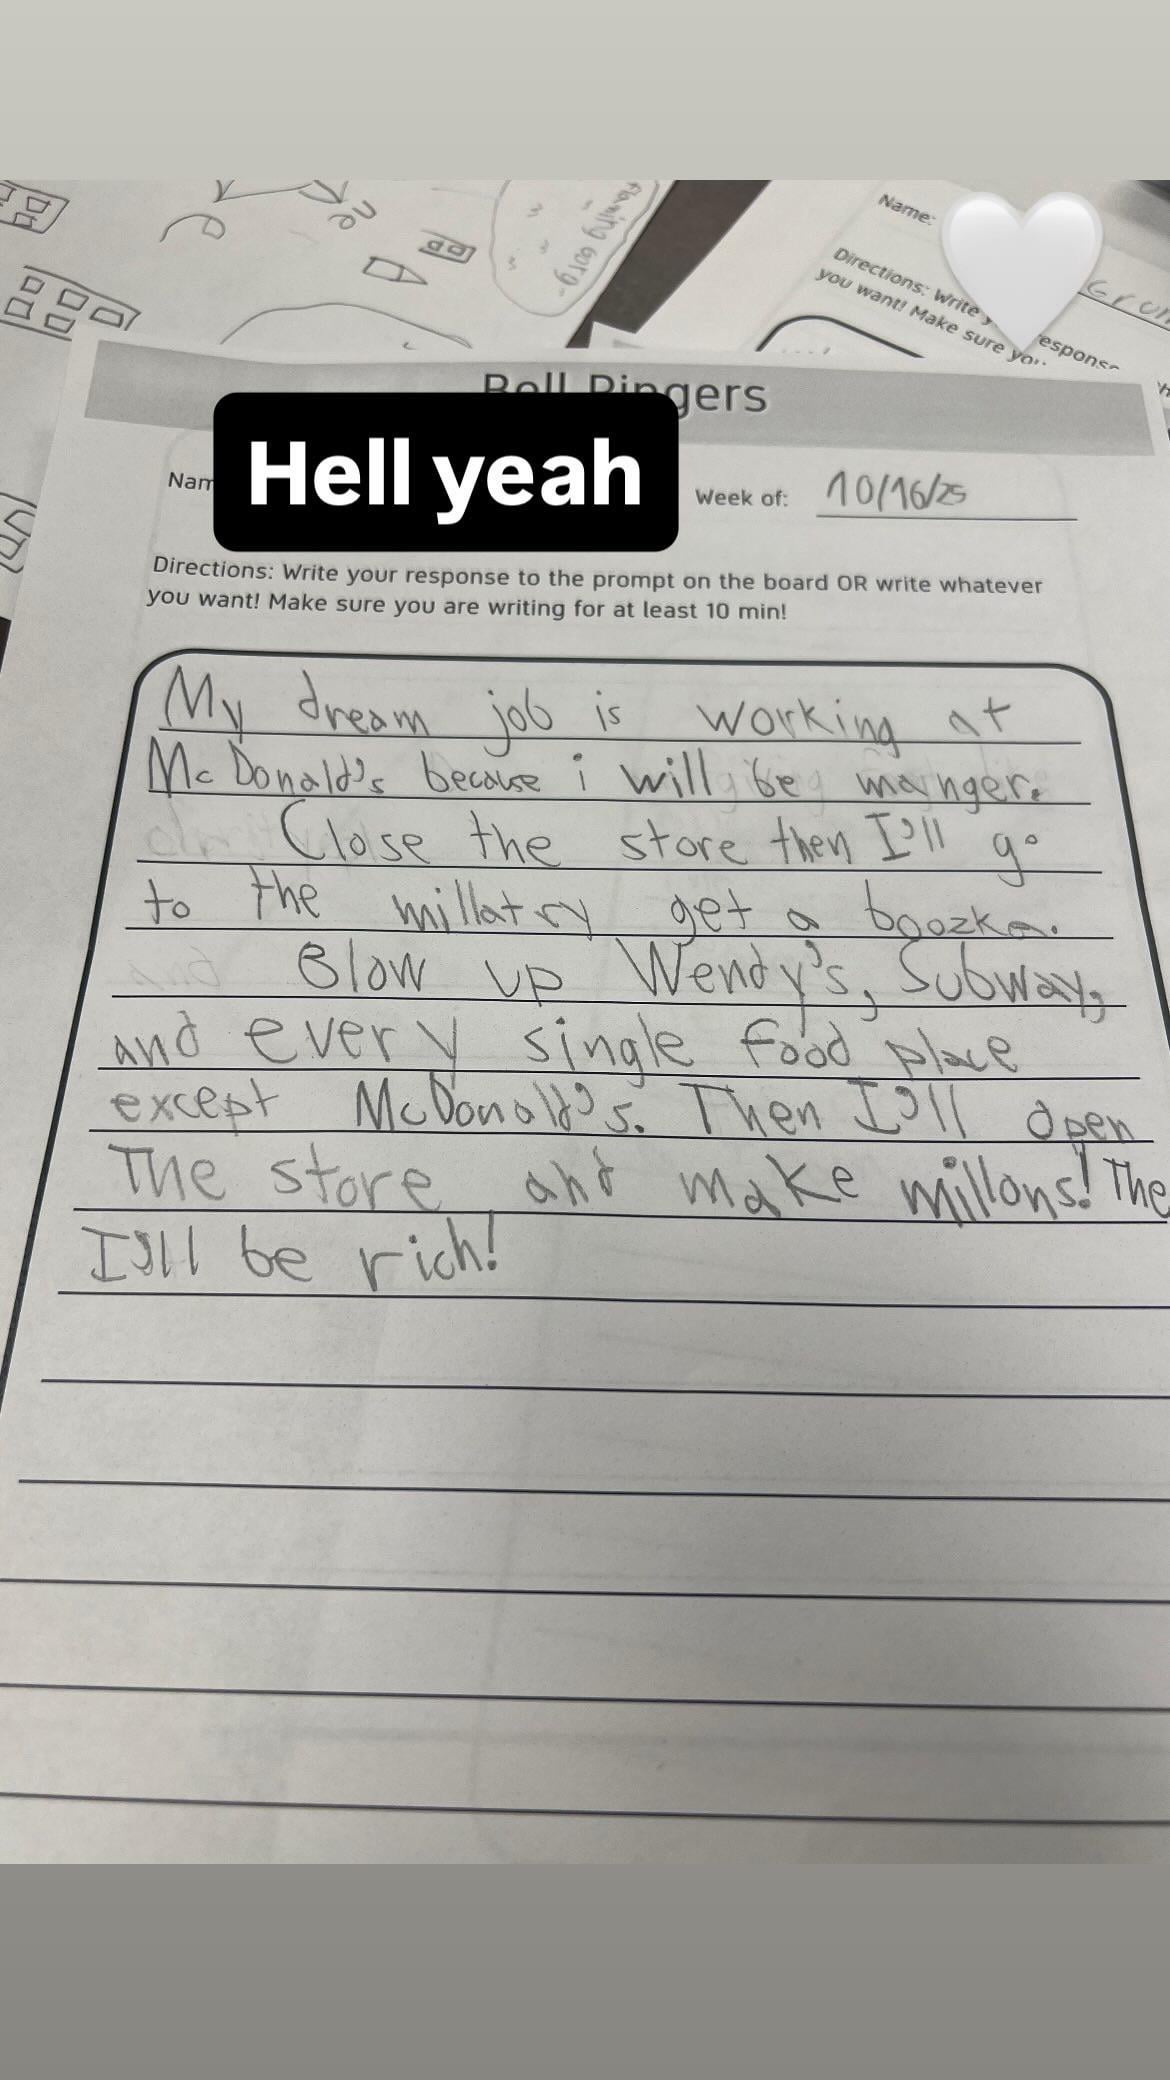 flaming Gorg
Name:
Directions: Write
you want! Make sure you
response
Bell Ringers
Hell yeah
Nam
Week of: 10/16/25
Directions: Write your response to the prompt on the board OR write whatever
you want! Make sure you are writing for at least 10 min!
My dream job is working at
McDonald's because i will be mainger.
Close the store then I'll go
to the millatry get a boozka.
Blow up Wendy's, Subway,
and every single food place
except McDonald's. Then I'll open
The store and make millons! The
I'll be rich!